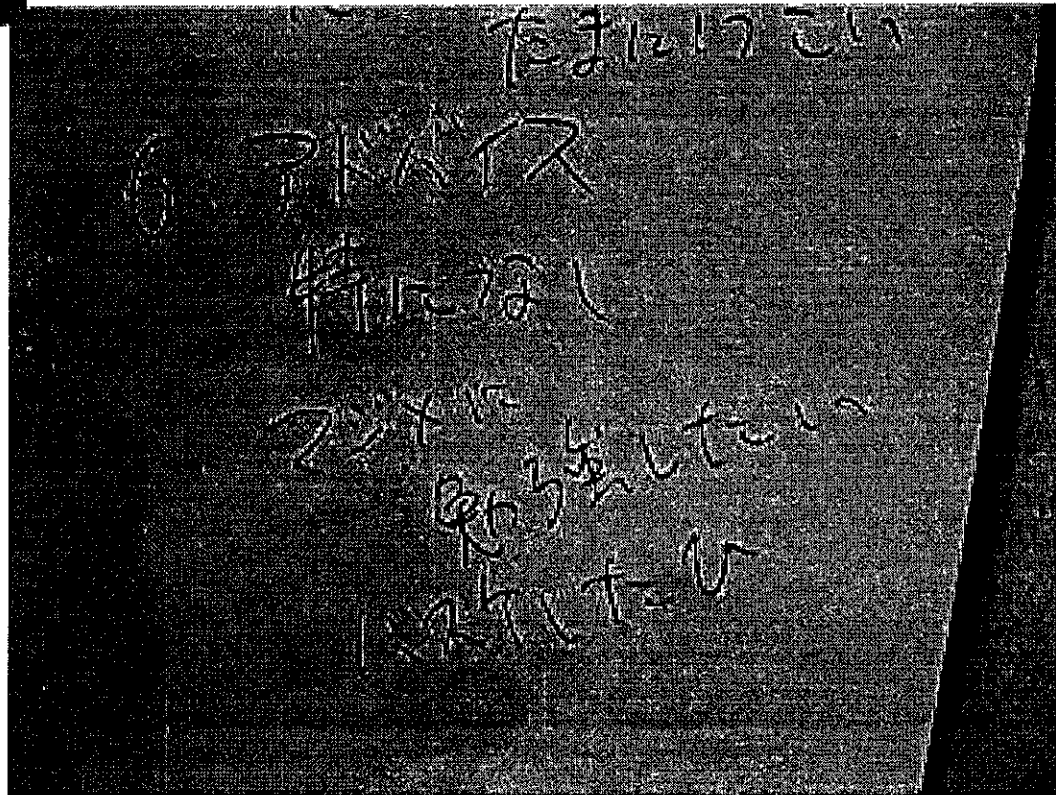 たまにけつこい
6 アドバイス
特になし
マジメに
勉強したい